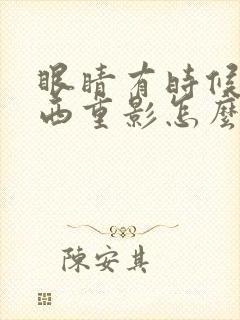 眼睛有時候
西重影怎麼
陳安其